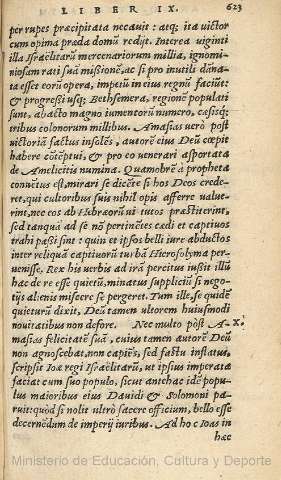 LIBER IX. 623
per rupes præcipitata necauit: atq; ita victor
cum opima præda domũ redijt. Interea uiginti
illa Israëlitarũ mercenariorum millia, ignomi-
niosam rati suã missionẽ, ac si pro inutili dãna-
ta esset eorũ opera, impetũ in eius regnũ faciũt:
& progressi usq; Bethsemera, regionẽ populati
sunt, abacto magno iumentorũ numero, cæsisq;
tribus colonorum millibus. Amasias uerò post
victoriã factus insolẽs, autorẽ eius Deũ cœpit
habere cõtẽptui, & pro eo uenerari asportata
de Amelicitis numina. Quamobrẽ à propheta
conuẽtus est, mirari se dicẽte si hos Deos crede-
ret, qui cultoribus suis nihil opis afferre value-
rint, nec eos ab Hebræorũ ui tutos præstiterint,
sed tanquã ad se nõ pertinẽtes cædi et captiuos
trahi paßi sint: quin et ipsos belli iure abductos
inter reliquã captiuorũ turbã Hierosolyma per-
uenisse. Rex his uerbis ad irã percitus iußit illũ
hac de re esse quietũ, minatus suppliciũ si nego-
tijs alienis miscere se pergeret. Tum ille, se quidẽ
quieturũ dixit, Deũ tamen ultorem huiusmodi
nouitatibus non defore. Nec multo pòst A- X.
masias felicitatẽ suã, cuius tamen autorẽ Deũ
non agnoscebat, non capiẽs, sed fastu inflatus,
scripsit Ioæ regi Israëlitarũ, ut ipsius imperata
faciat cum suo populo, sicut antehac idẽ popu-
lus maioribus eius Dauidi & Solomoni pa-
ruit: quòd si nolit ultrò facere officium, bello esse
decernẽdum de imperij iuribus. Ad hoc Ioas in
hæc
Ministerio de Educación, Cultura y Deporte